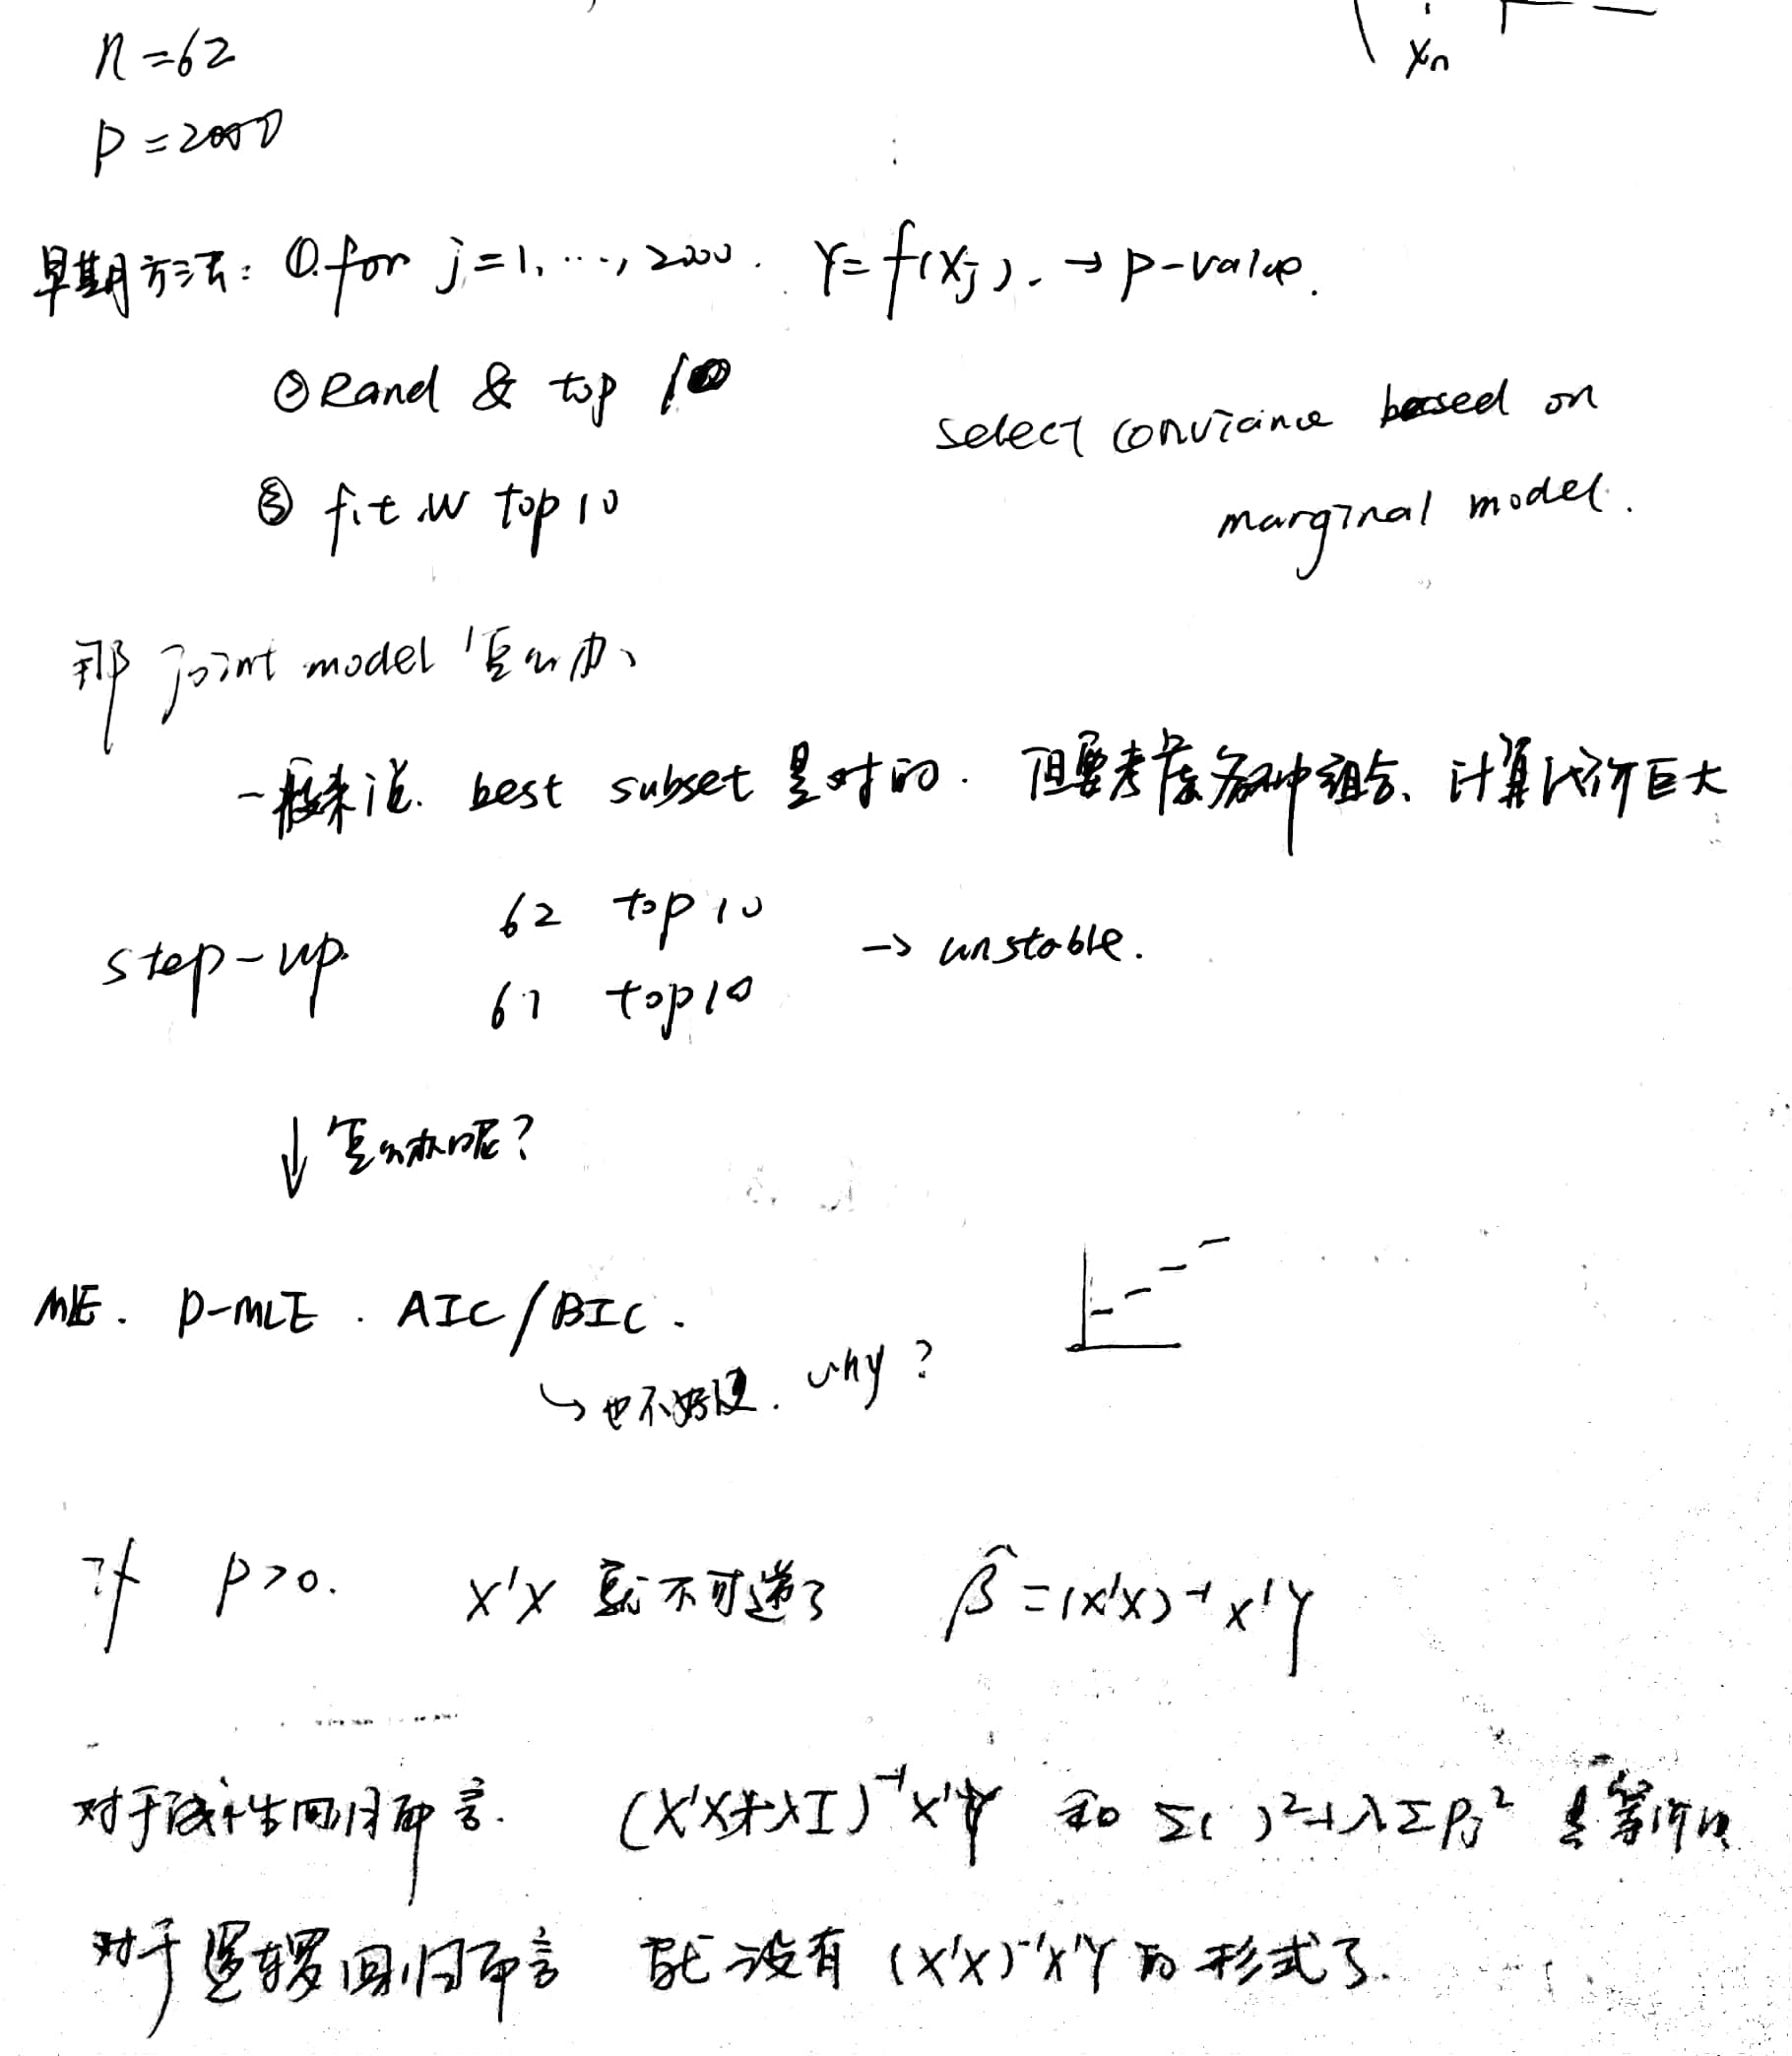 xn
n=62
P=2000
早期方法: ①. for j=1, ..., 2000. Y=f(Xj). → p-value.
② Rand & top 10
select conviance based on
③ fit w top 10
marginal model.
那 joint model 怎么办、
一般来说. best subset 是对的. 但要考虑各种组合、计算代价巨大
62 top 10
step-up. → unstable.
61 top 10
↓ 怎么办呢?
MLE. P-MLE. AIC/BIC.
↳ 也不好使. why?
if p>0. X'X 就不可逆了 β̂=(X'X)⁻¹X'Y
对于线性回归而言. (X'X+λI)⁻¹X'Y 和 Σ( )²+λΣβj² 是等价的
对于逻辑回归而言 就没有 (X'X)⁻¹X'Y 的形式了.